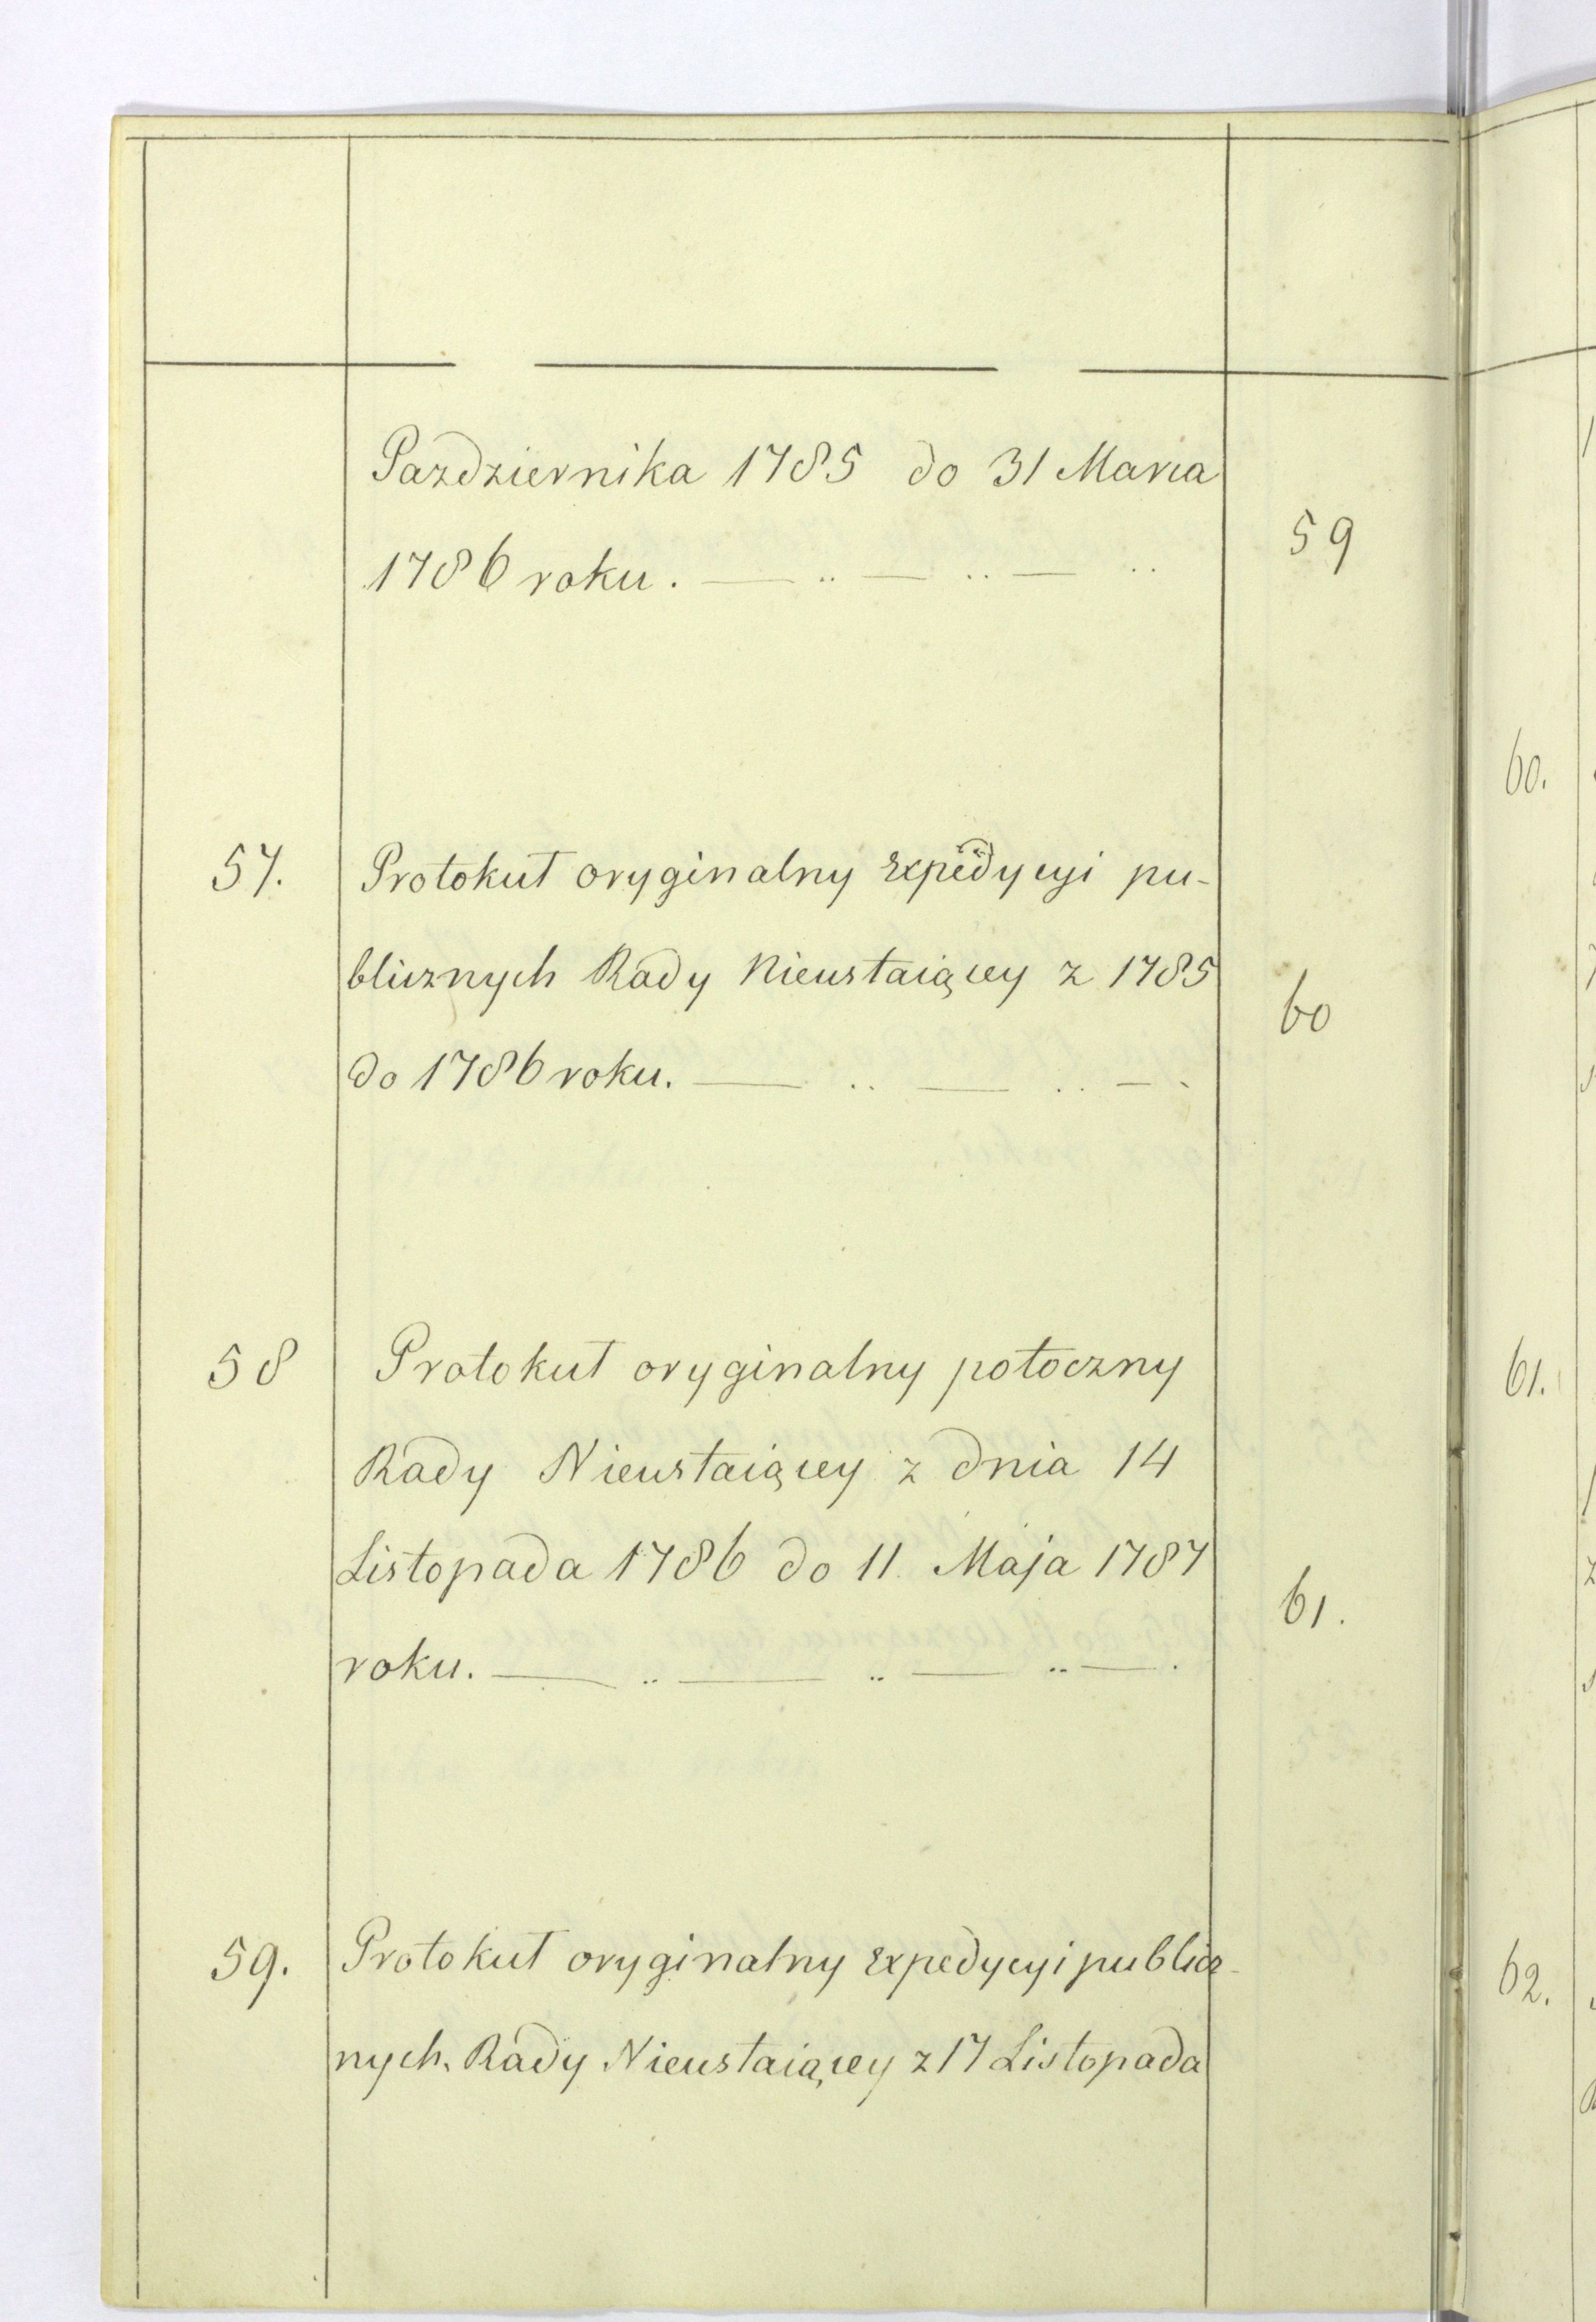 Pazdziernika 1785 do 31 Marca
1786 roku. — .. — .. — ..
59
57. Protokuł oryginalny Expedycyi pu-
blicznych Rady Nieustaiącey z 1785
do 1786 roku. — .. — .. — .
60
58 Protokuł oryginalny potoczny
Rady Nieustaiącey z dnia 14
Listopada 1786 do 11. Maja 1787
roku. — .. — .. — .. — .
61.
59. Protokuł oryginalny Expedycyi publicz-
nych, Rady Nieustaiącey z 17 Listopada
60.
61.
62.